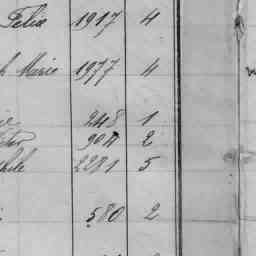 Felix 1917 4
h Marie 1977 4
248 1
904 2
2281 5
580 2